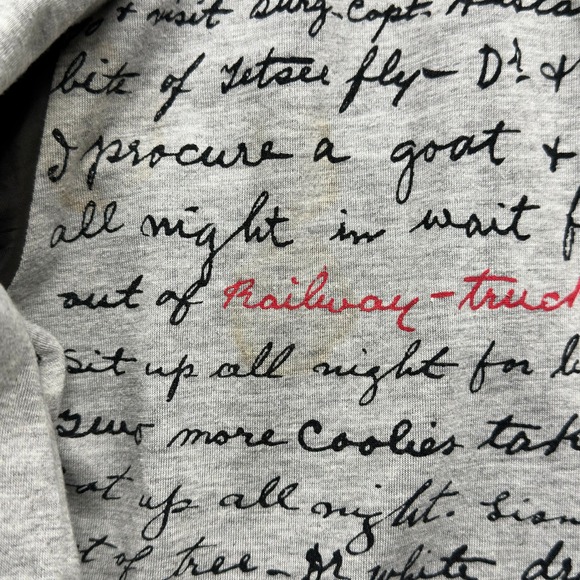 & visit Surg. Capt.
bite of Tetsee fly - Dr. &
I procure a goat &
all night in wait
out of Railway-truck
Sit up all night for
Two more Coolies
up all night.
of tree - Dr white